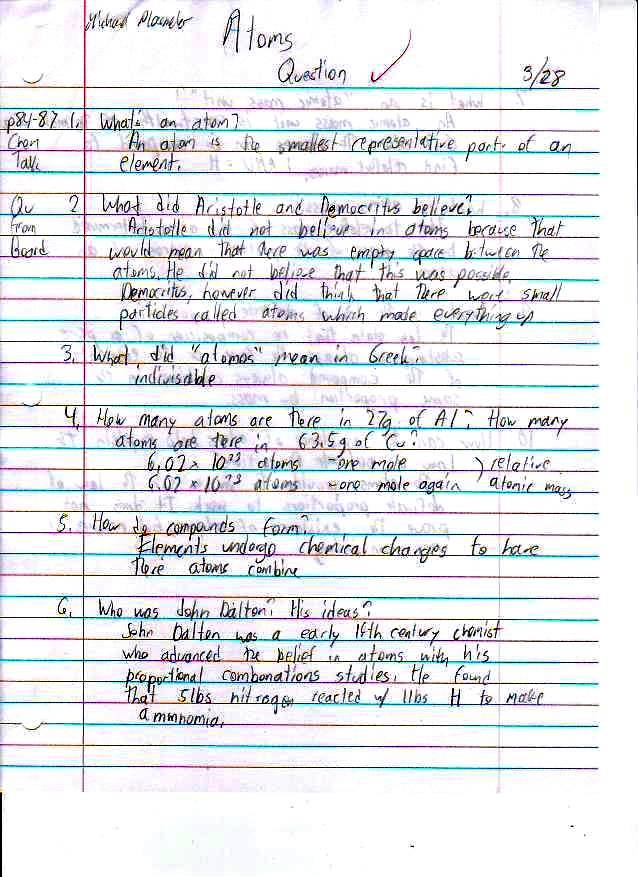 Michael
Atoms
Question 3/28
p84-87 1. What's an atom?
Chem An atom is the smallest representative part of an
Talk element.
Qu 2 What did Aristotle and Democritus believe?
from Aristotle did not believe in atoms because that
board would mean that there was empty space between the
atoms. He did not believe that this was possible.
Democritus, however did think that there were small
particles called atoms which made everything up
3. What did "atomos" mean in Greek?
indivisable
4. How many atoms are there in 27g of Al? How many
atoms are there in 63.5g of Cu?
6.02 x 10²³ atoms - one mole ) relative
6.02 x 10²³ atoms - one mole again atomic mass
5. How do compounds form?
Elements undergo chemical changes to have
there atoms combine
6. Who was John Dalton? His ideas?
John Dalton was a early 19th century chemist
who advanced the belief in atoms with his
proportional combonations studies. He found
that 5lbs nitrogen reacted w/ 1lbs H to make
ammnomia.